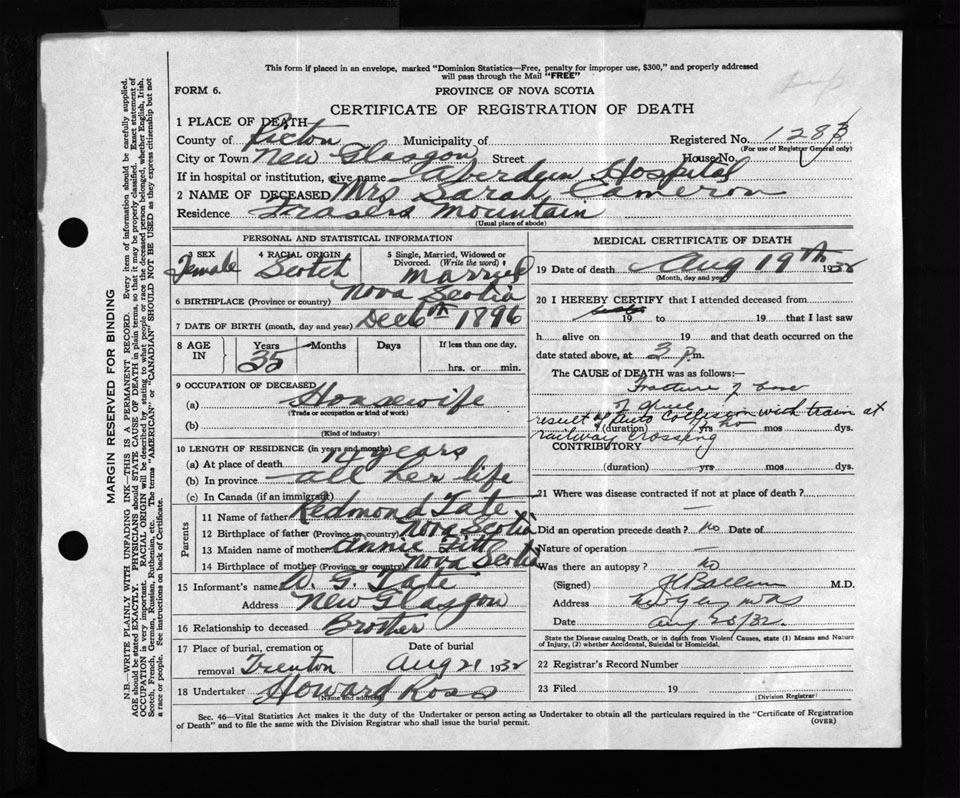 This form if placed in an envelope, marked "Dominion Statistics—Free, penalty for improper use, $300," and properly addressed
will pass through the Mail "FREE"
FORM 6.
PROVINCE OF NOVA SCOTIA
CERTIFICATE OF REGISTRATION OF DEATH
1 PLACE OF DEATH
County of Pictou Municipality of Registered No. 1283
(For use of Registrar General only)
City or Town New Glasgow Street House No.
If in hospital or institution, give name Aberdeen Hospital
2 NAME OF DECEASED Mrs Sarah Cameron
Residence Frasers Mountain
(Usual place of abode)
PERSONAL AND STATISTICAL INFORMATION
3 SEX Female 4 RACIAL ORIGIN Scotch 5 Single, Married, Widowed or Divorced. (Write the word) Married
6 BIRTHPLACE (Province or country) Nova Scotia
7 DATE OF BIRTH (month, day and year) Dec 6th 1896
8 AGE IN Years 35 Months Days If less than one day, hrs. or min.
9 OCCUPATION OF DECEASED
(a) Housewife
(Trade or occupation or kind of work)
(b)
(Kind of industry)
10 LENGTH OF RESIDENCE (in years and months)
(a) At place of death 14 years
(b) In province all her life
(c) In Canada (if an immigrant)
Parents
11 Name of father Redmond Tate
12 Birthplace of father (Province or country) Nova Scotia
13 Maiden name of mother Annie
14 Birthplace of mother (Province or country) Nova Scotia
15 Informant's name W. G. Tate
Address New Glasgow
16 Relationship to deceased Brother
17 Place of burial, cremation or removal Trenton Date of burial Aug 21 1932
18 Undertaker Howard Ross
(Name and address)
MEDICAL CERTIFICATE OF DEATH
19 Date of death Aug 19th 1932
(Month, day and year)
20 I HEREBY CERTIFY that I attended deceased from
19 to 19 that I last saw
h alive on 19 and that death occurred on the
date stated above, at 3 P.m.
The CAUSE of DEATH was as follows:
Fracture of base
of
result of auto collision with train at
(duration) yrs mos dys.
railway crossing
CONTRIBUTORY
(duration) yrs mos dys.
21 Where was disease contracted if not at place of death?
Did an operation precede death? no Date of
Nature of operation —
Was there an autopsy? no
(Signed) M.D.
Address
Date Aug 23/32.
State the Disease causing Death, or in death from Violent Causes, state (1) Means and Nature
of Injury, (2) whether Accidental, Suicidal or Homicidal.
22 Registrar's Record Number
23 Filed 19
(Division Registrar)
Sec. 46—Vital Statistics Act makes it the duty of the Undertaker or person acting as Undertaker to obtain all the particulars required in the "Certificate of Registration
of Death" and to file the same with the Division Registrar who shall issue the burial permit.
(OVER)
MARGIN RESERVED FOR BINDING
N.B.—WRITE PLAINLY WITH UNFADING INK—THIS IS A PERMANENT RECORD. Every item of information should be carefully supplied.
AGE should be stated EXACTLY. PHYSICIANS should STATE CAUSE OF DEATH in plain terms, so that it may be properly classified. Exact statement of
OCCUPATION is very important. RACIAL ORIGIN will be described by stating to what people or race the deceased person belonged, whether English, Irish,
Scotch, French, German, Russian, Ruthenian, etc. The terms "AMERICAN" or "CANADIAN" SHOULD NOT BE USED as they express citizenship but not
a race or people. See instructions on back of Certificate.